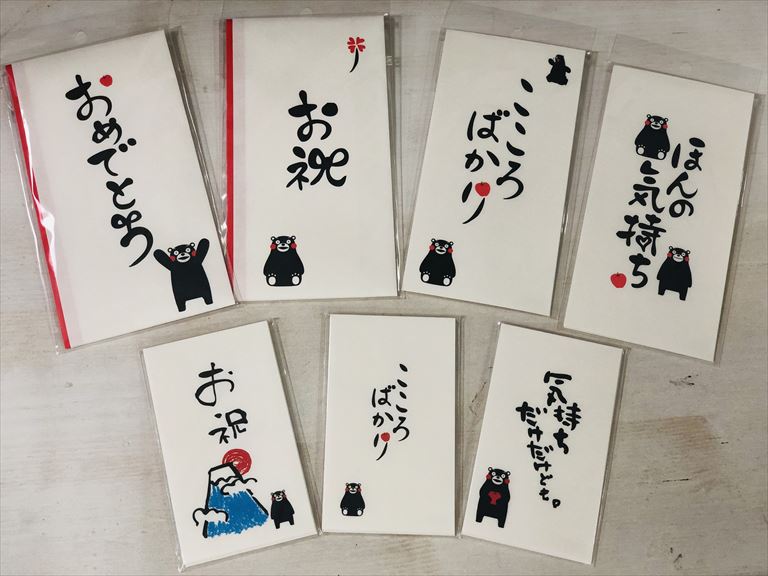 おめでとう
お祝
こころ
ばかり
ほんの
気持ち
お祝
こころ
ばかり
気持ち
だけだけども。